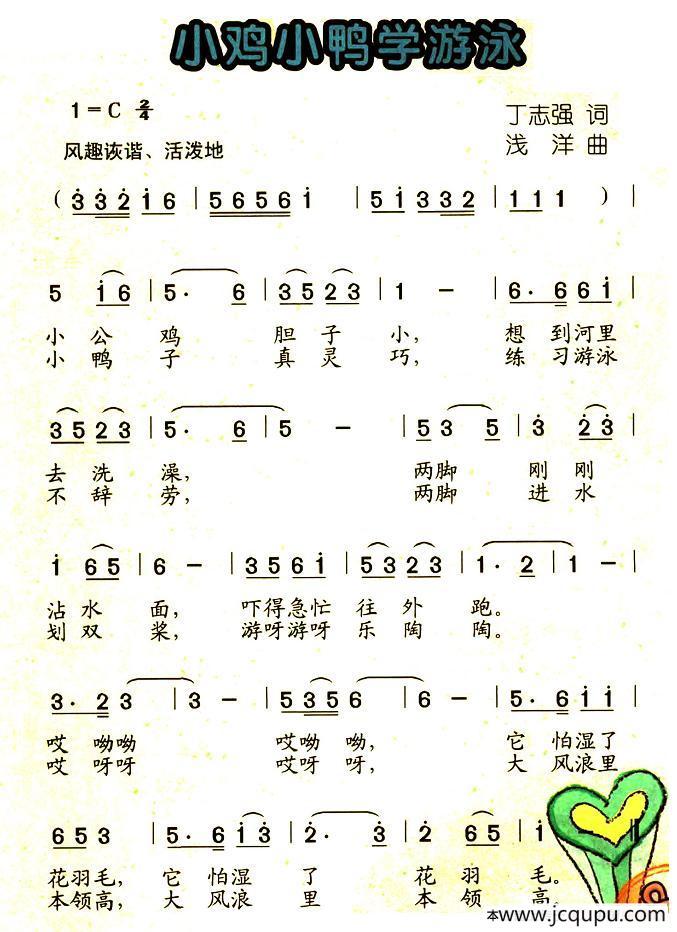 小鸡小鸭学游泳
1=C 2/4
丁志强 词
风趣诙谐、活泼地
浅 洋 曲
( 3 3 2 1 6 | 5 6 5 6 1 | 5 1 3 3 2 | 1 1 1 ) |
5 1 6 | 5· 6 | 3 5 2 3 | 1 - | 6· 6 6 1 |
小 公 鸡 胆 子 小, 想 到河里
小 鸭 子 真 灵 巧, 练 习游泳
3 5 2 3 | 5· 6 | 5 - | 5 3 5 | 3 2 3 |
去 洗 澡, 两脚 刚 刚
不 辞 劳, 两脚 进 水
1 6 5 | 6 - | 3 5 6 1 | 5 3 2 3 | 1· 2 | 1 - |
沾 水 面, 吓得急忙 往 外 跑。
划 双 桨, 游呀游呀 乐 陶 陶。
3· 2 3 | 3 - | 5 3 5 6 | 6 - | 5· 6 1 1 |
哎 呦呦 哎呦 呦, 它 怕湿了
哎 呀呀 哎呀 呀, 大 风浪里
6 5 3 | 5· 6 1 3 | 2· 3 | 2 6 5 | 1 ‖
花羽毛, 它 怕湿 了 花 羽 毛。
本领高, 大 风浪 里 本 领 高。
本www.jcqupu.com